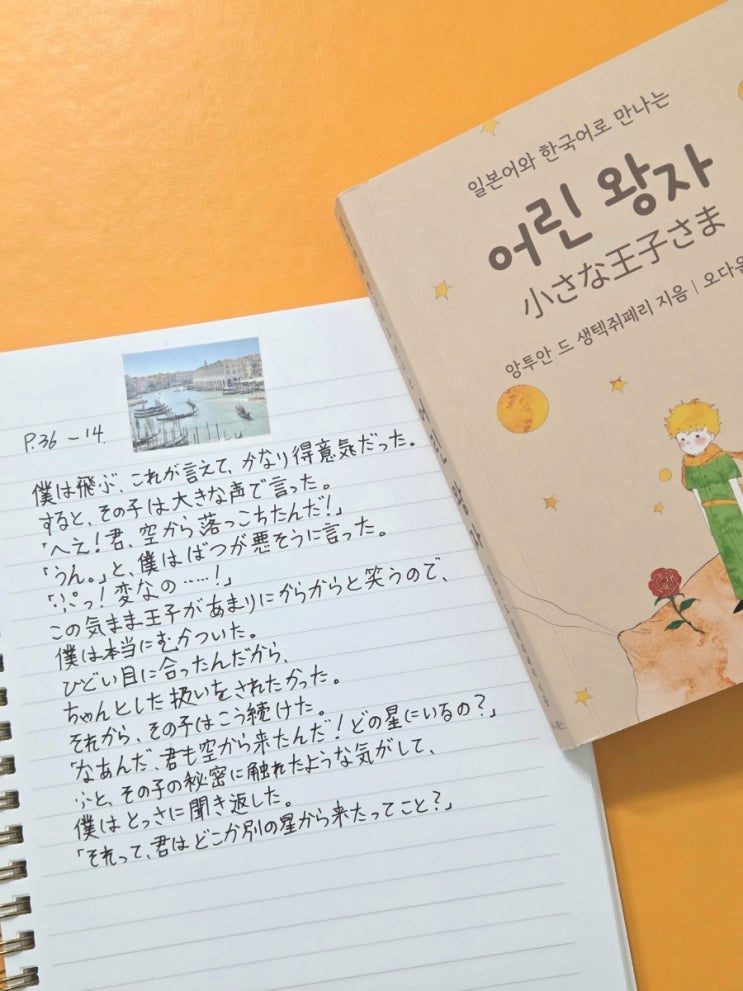 일본어와 한국어로 만나는
어린 왕자
小さな王子さま
앙투안 드 생텍쥐페리 지음 | 오다윤
P.36 – 14.
僕は飛ぶ、これが言えて、かなり得意気だった。
すると、その子は大きな声で言った。
「へえ！君、空から落っこちたんだ！」
「うん。」と、僕はばつが悪そうに言った。
「ぷっ！変なの……！」
この気まま王子があまりにからからと笑うので、
僕は本当にむかついた。
ひどい目に合ったんだから、
ちゃんとした扱いをされたかった。
それから、その子はこう続けた。
「なあんだ、君も空から来たんだ！どの星にいるの？」
ふと、その子の秘密に触れたような気がして、
僕はとっさに聞き返した。
「それって、君はどこか別の星から来たってこと？」